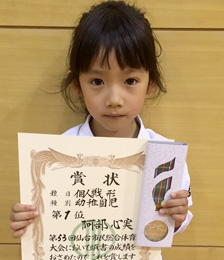 賞状
種目 個人戦 形
幼稚園児
第1位
阿部心実
第53回仙台市民総合体育
大会において頭書の成績を
おさめたのでこれを賞します